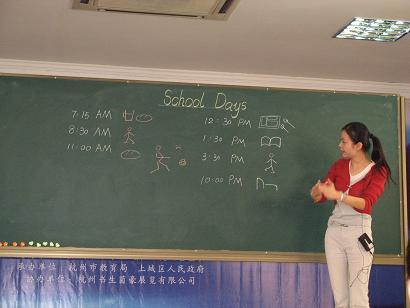 School Days
7:15 AM
8:30 AM
11:00 AM
12:30 PM
1:30 PM
3:30 PM
10:00 PM
承办单位:杭州市教育局 上城区人民政府
协办单位:杭州书生菌豪展览有限公司